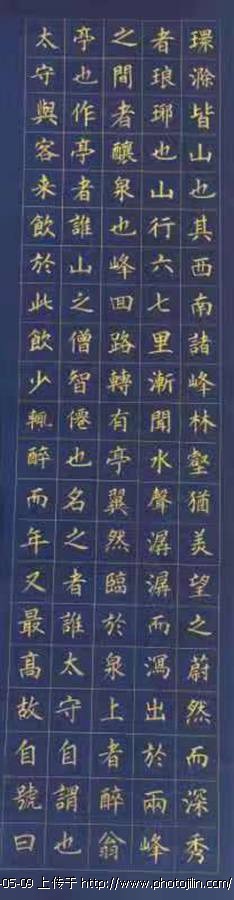 環滁皆山也其西南諸峰林壑猶美望之蔚然而深秀
者琅琊也山行六七里漸聞水聲潺潺而瀉出於兩峰
之間者釀泉也峰回路轉有亭翼然臨於泉上者醉翁
亭也作亭者誰山之僧智僊也名之者誰太守自謂也
太守與客来飲於此飲少輒醉而年又最高故自號曰
-05-09 上传于 http://www.photojlin.com/